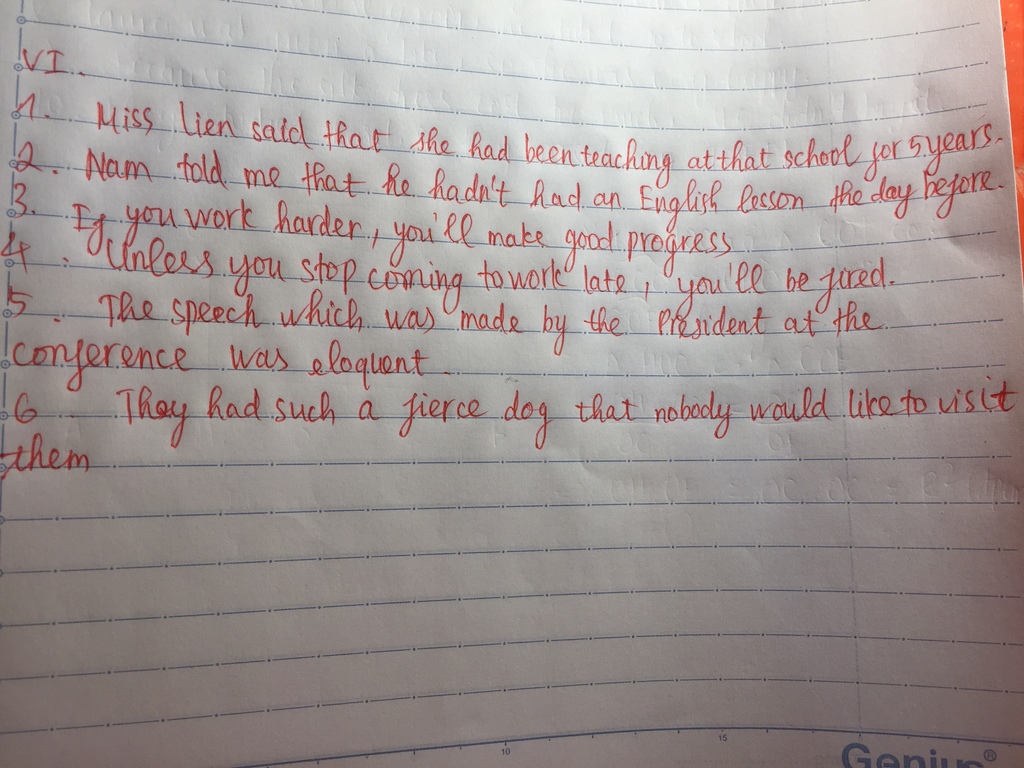 VI..
1. Miss Lien said that she had been teaching at that school for 5 years.
2. Nam told me that he hadn't had an English lesson the day before.
3. If you work harder, you'll make good progress
4. Unless you stop coming to work late, you'll be fired.
5. The speech which was made by the President at the
conference was eloquent.
6. They had such a fierce dog that nobody would like to visit
them
10
15
Genius®